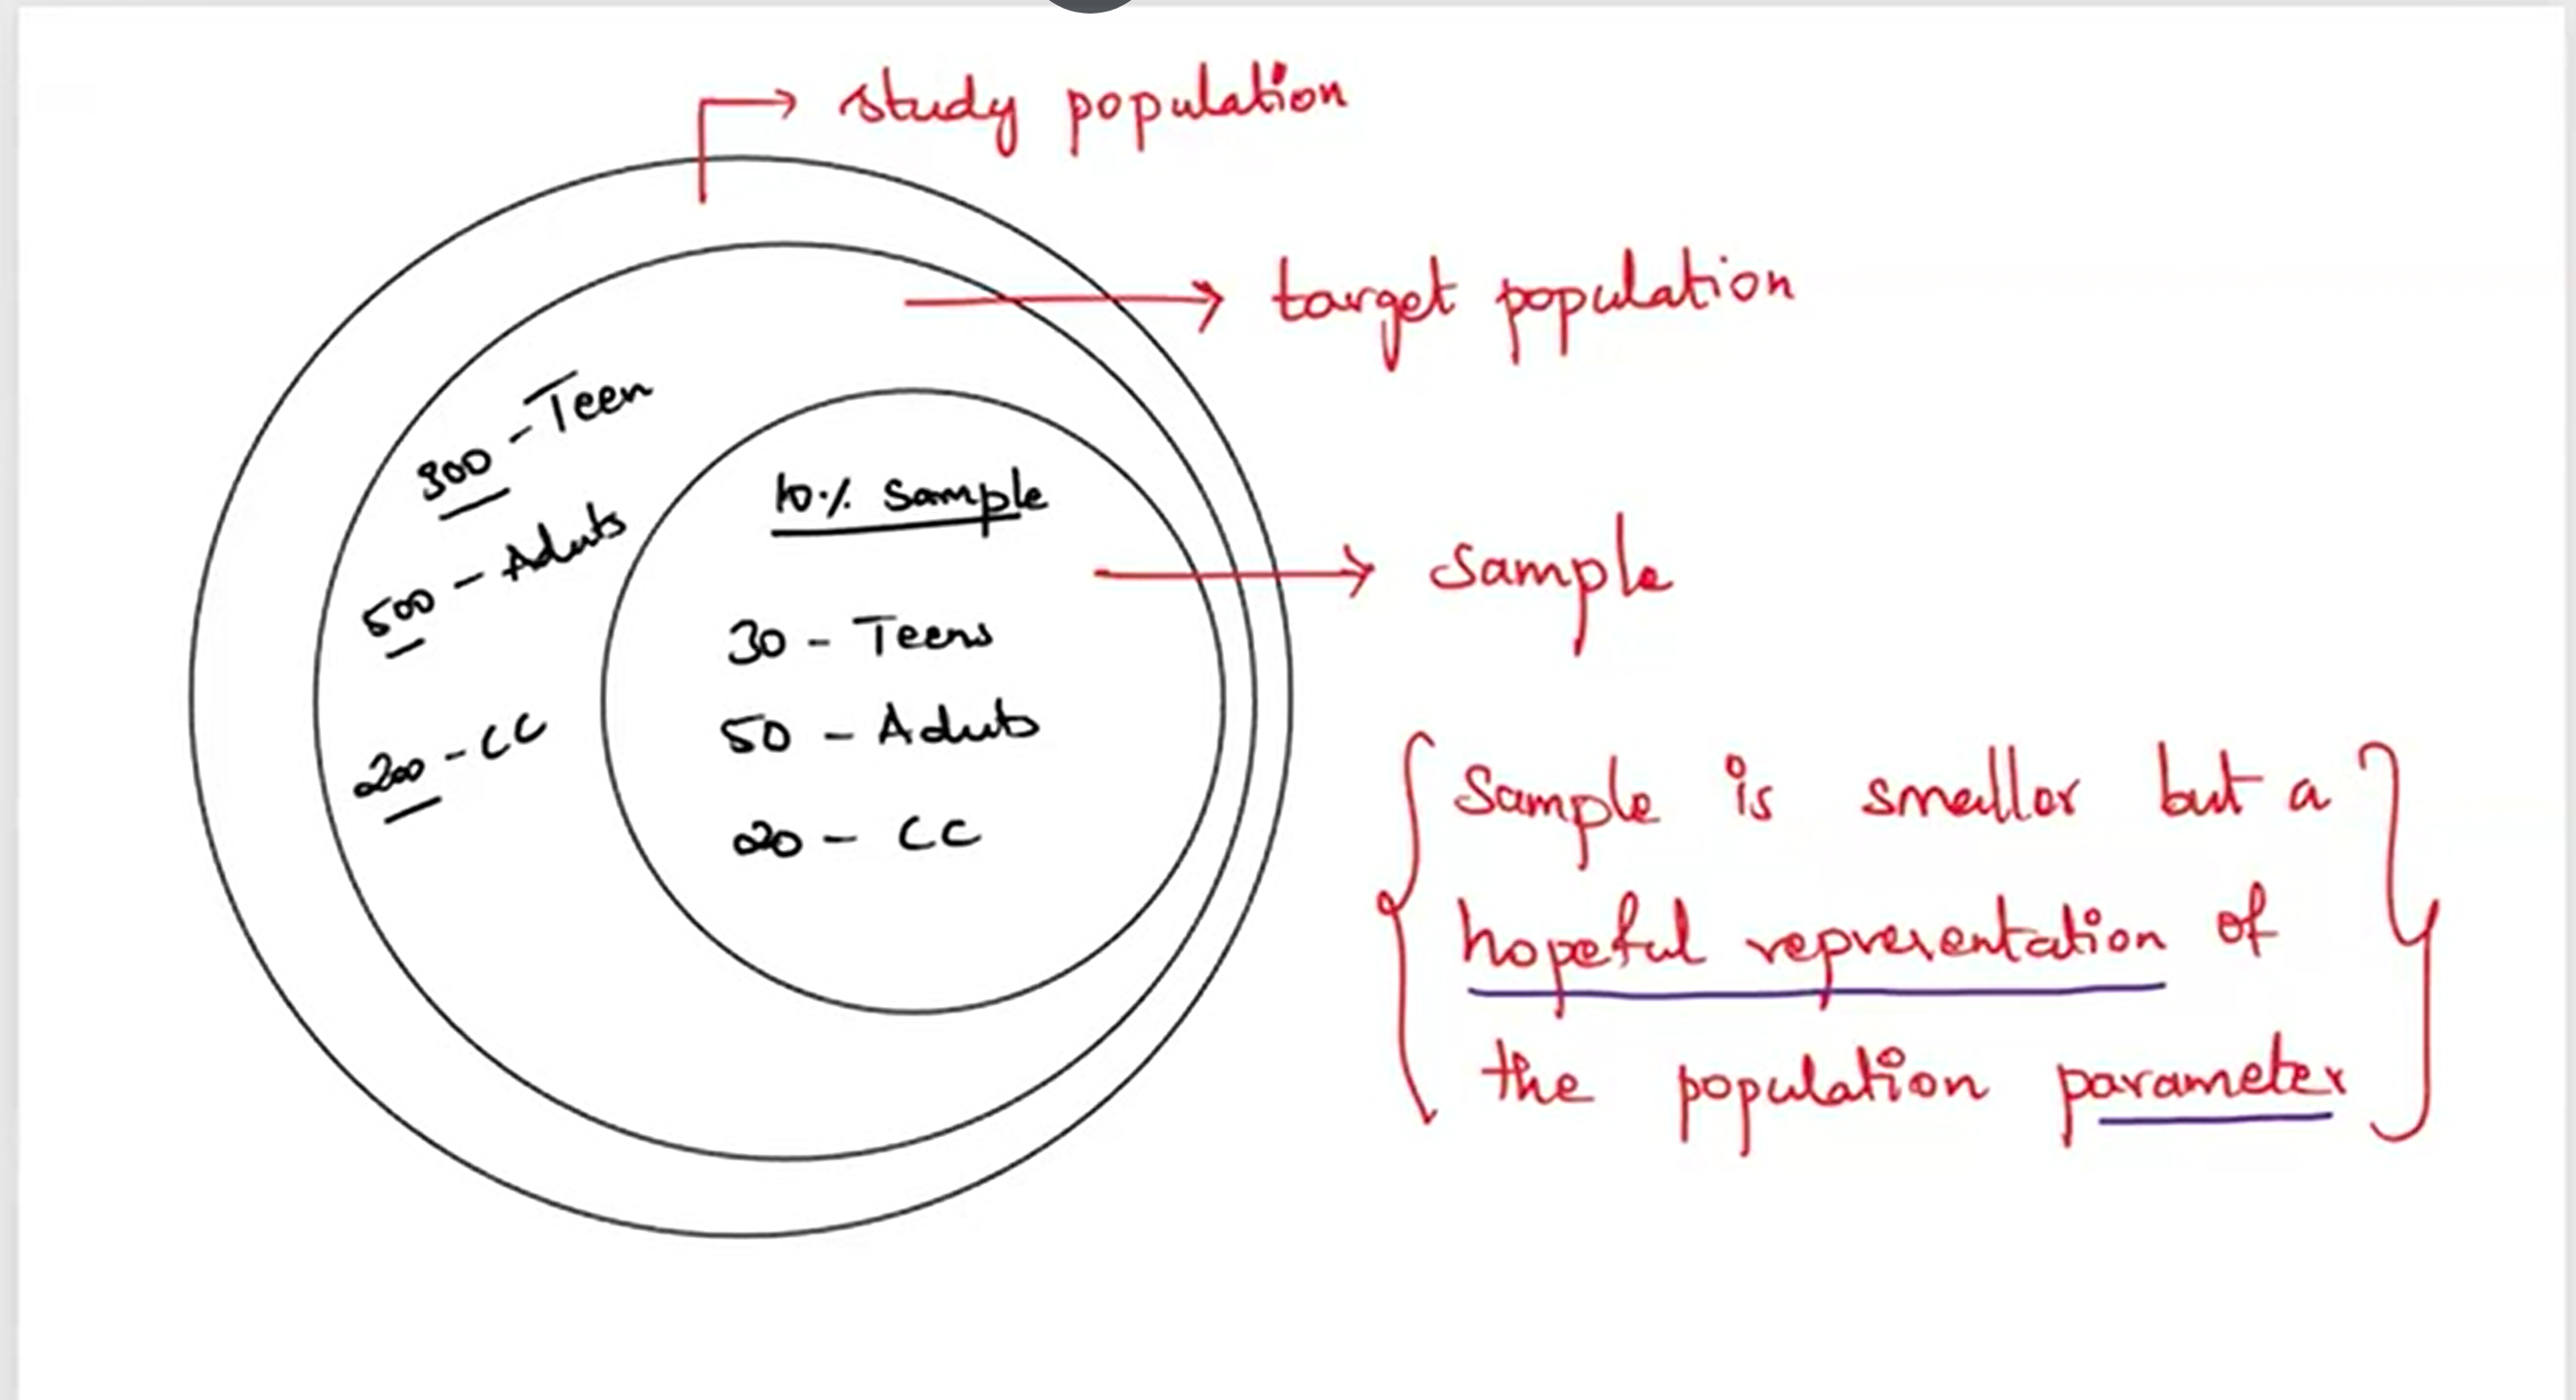 study population
target population
300 - Teen
10% Sample
500 - Aduts
sample
30 - Teens
50 - Aduts
200 - CC
20 - CC
Sample is smaller but a
hopeful representation of
the population parameter